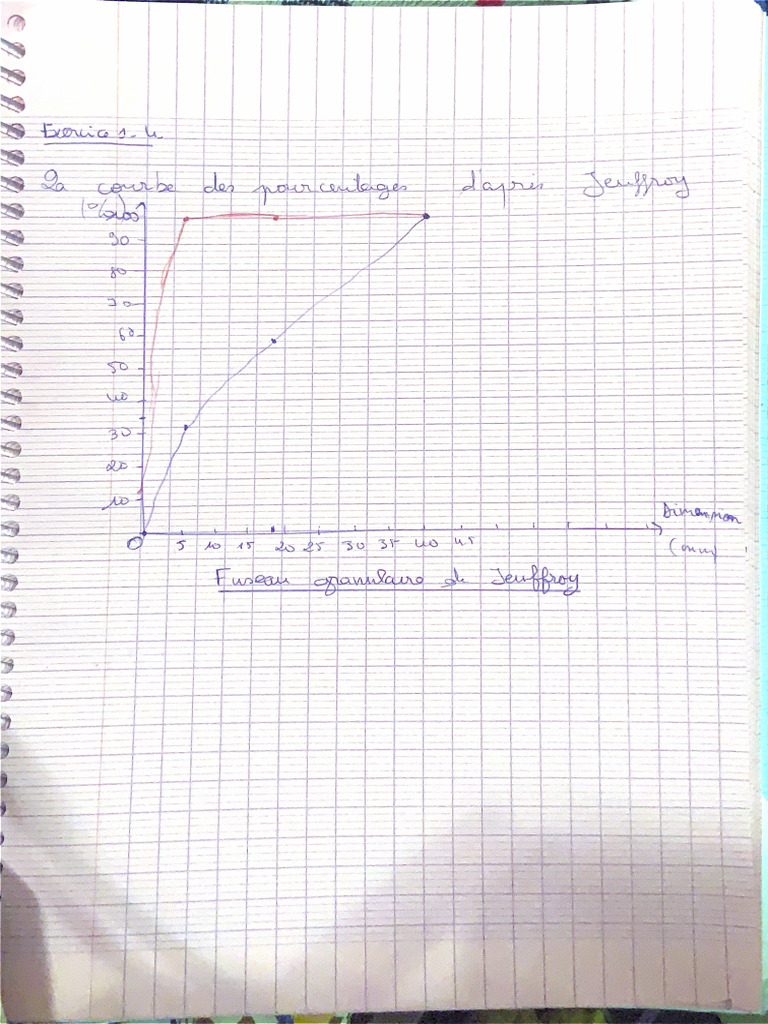 Exercice 1-4
La courbe des pourcentages d'apris Jeuffroy
(%) 100
90
80
70
60
50
40
30
20
10
0 5 10 15 20 25 30 35 40 45
Dimension
(mm)
Fuseau granulaire de Jeuffroy